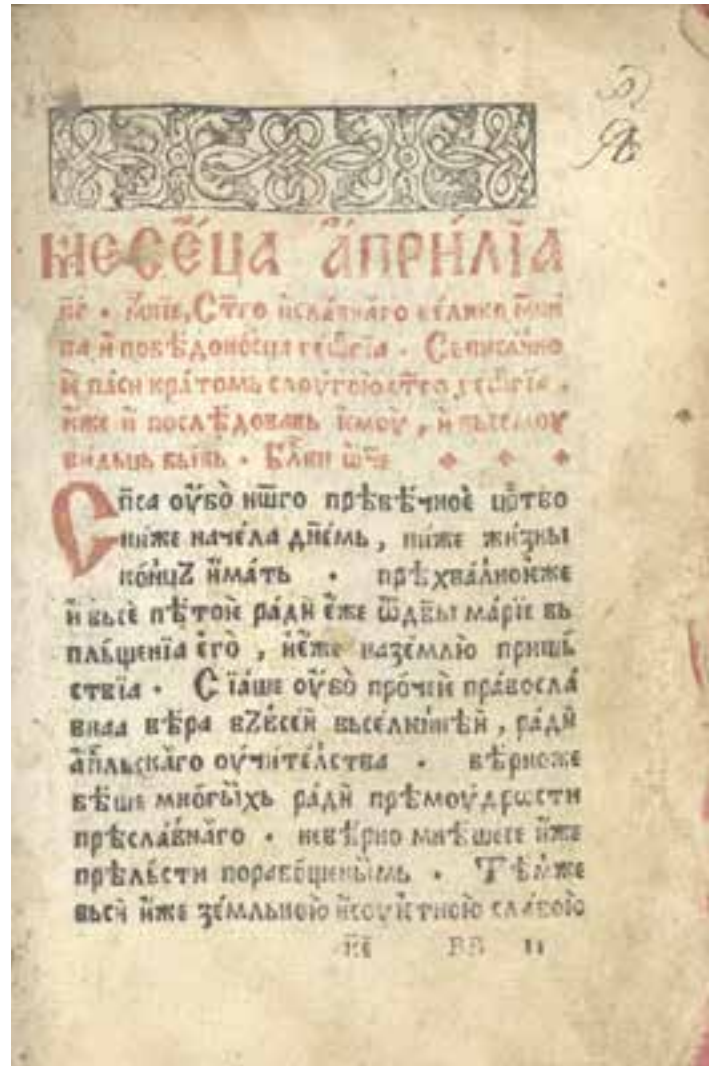 МЕСЕ́ЦА А҆ПРИ́ЛЇА
Ст҃го и҆ славнаго велико
и҆ побѣдоно́сца геѡ́гїа . Съписа́но
кра́томь слоугою ст҃го геѡ́гїа .
и҆же и҆ послѣ́довавь ѥмоу , и҆ высемоу
видьць бывь . Бл҃ви ѡч҃е
Сп҃са оу҆бо̀ нш҃го прѣвѣ́чноѐ цр҃тво
ниже наче́ла дн҃ѐмь , ниже жи́зны
ко́нцꙁ и҆ма́ть . прѣхва́лноиже
и҆ вьсѐ пѣ́тоѐ ра́ди є҆́же ѿ дв҃ы ма́рїе вь
пль́щенїа є҆го̀ , и҆є҆́же на зе́млю пришь
ствїа . Сїа́ше оу҆бо̀ про́чей правосла́
внаа вѣ́ра вꙁ всѐй вьселѥ́нѣй , ра́ди
а҆пⷭ҇льска́го оу҆чите́лства . вѣрноже
бѣ́ше мно́гыхь ра́ди прѣмоу́дрости
прѣсла́внаго . невѣ́рно мнѣ́шесе и҆же
прѣ́льсти порабо́щеныимь . Тѣ́мже
вьсѝ и҆же зе́мльною и҆ соуѥ́тною сла́вою
к҃є ВВ 11